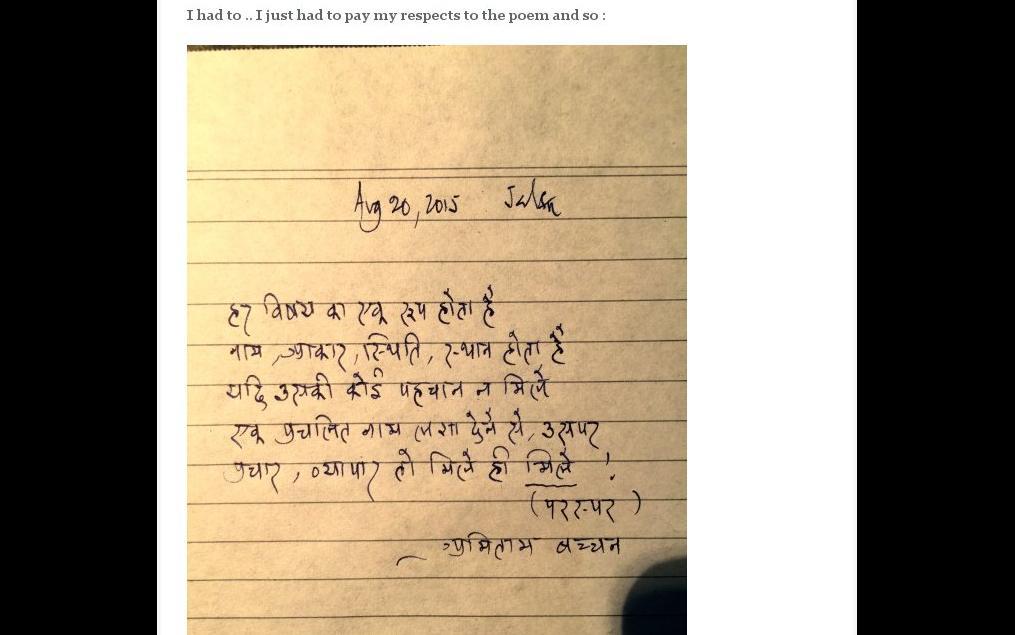 I had to .. I just had to pay my respects to the poem and so :
Aug 20, 2015 Jalsa
हर विषय का एक रूप होता है
नाम, आकार, स्थिति, स्थान होता है
यदि उसकी कोई पहचान न मिले
एक प्रचलित नाम लगा देने से, उसपर
प्रचार, व्यापार तो मिले ही मिले !
(परस्पर)
अमिताभ बच्चन